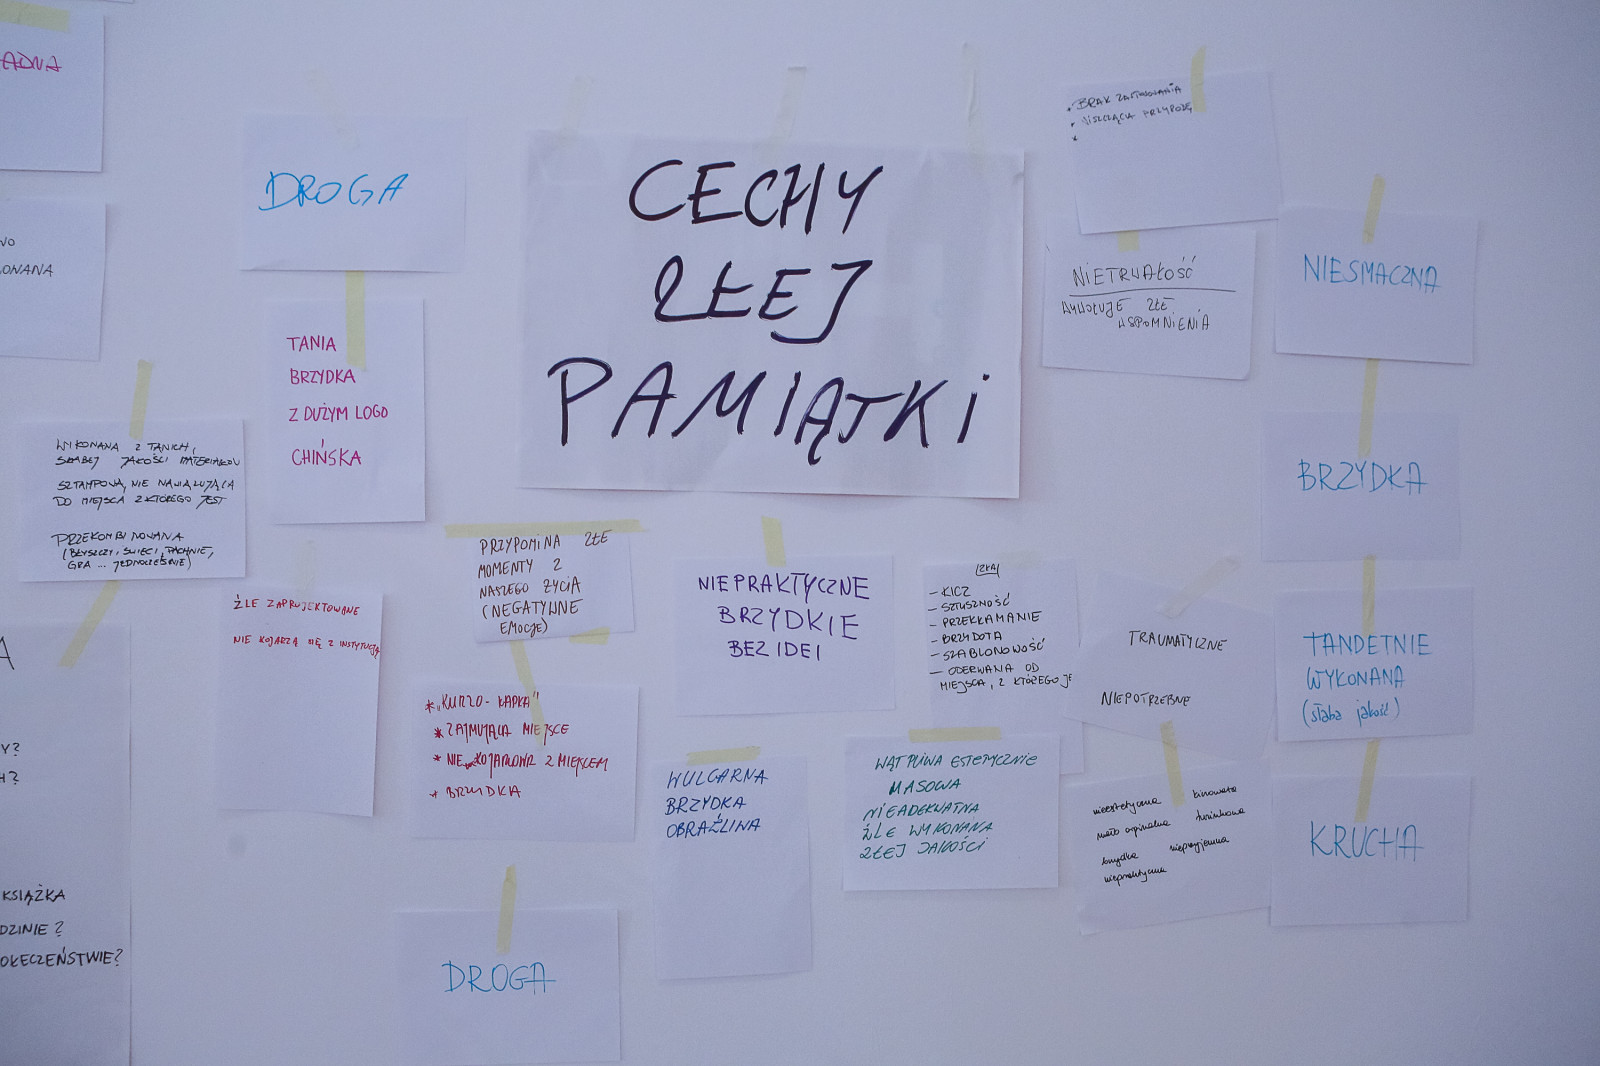 ADNA
DROGA
CECHY
ZŁEJ
PAMIĄTKI
• BRAK ZASTOSOWANIA
• NISZCZĄCA PRZYRODĘ
•
NIETRWAŁOŚĆ
WYWOŁUJE ZŁE
WSPOMNIENIA
NIESMACZNA
VO
ONANA
TANIA
BRZYDKA
Z DUŻYM LOGO
CHIŃSKA
BRZYDKA
WYKONANA Z TANICH,
SŁABEJ JAKOŚCI MATERIAŁÓW
SZTAMPOWA, NIE NAWIĄZUJĄCA
DO MIEJSCA Z KTÓREGO JEST
PRZEKOMBINOWANA
(BŁYSZCZY, ŚWIECI, PACHNIE,
GRA ... JEDNOCZEŚNIE)
PRZYPOMINA ZŁE
MOMENTY Z
NASZEGO ŻYCIA
(NEGATYWNE
EMOCJE)
NIEPRAKTYCZNE
BRZYDKIE
BEZ IDEI
(ZŁA)
- KICZ
- SZTUSZNOŚĆ
- PRZEKŁAMANIE
- BRZYDOTA
- SZABLONOWOŚĆ
- ODERWANA OD
MIEJSCA, Z KTÓREGO JE
TRAUMATYCZNE
NIEPOTRZEBNE
TANDETNIE
WYKONANA
(słaba jakość)
ŹLE ZAPROJEKTOWANE
NIE KOJARZĄ SIĘ Z INSTYTUCJĄ
* „KURZO-ŁAPKA"
* ZAJMUJĄCA MIEJSCE
* NIE KOJARZONA Z MIEJSCEM
* BRZYDKA
WULGARNA
BRZYDKA
OBRAŹLIWA
WĄTPLIWA ESTETYCZNIE
MASOWA
NIEADEKWATNA
ŹLE WYKONANA
ZŁEJ JAKOŚCI
nieestetyczna
kiczowata
mało oryginalna
brzydka nieprzyjemna
niepraktyczna
KRUCHA
A
Y?
H?
KSIĄŻKA
DZINIE?
OŁECZEŃSTWIE?
DROGA